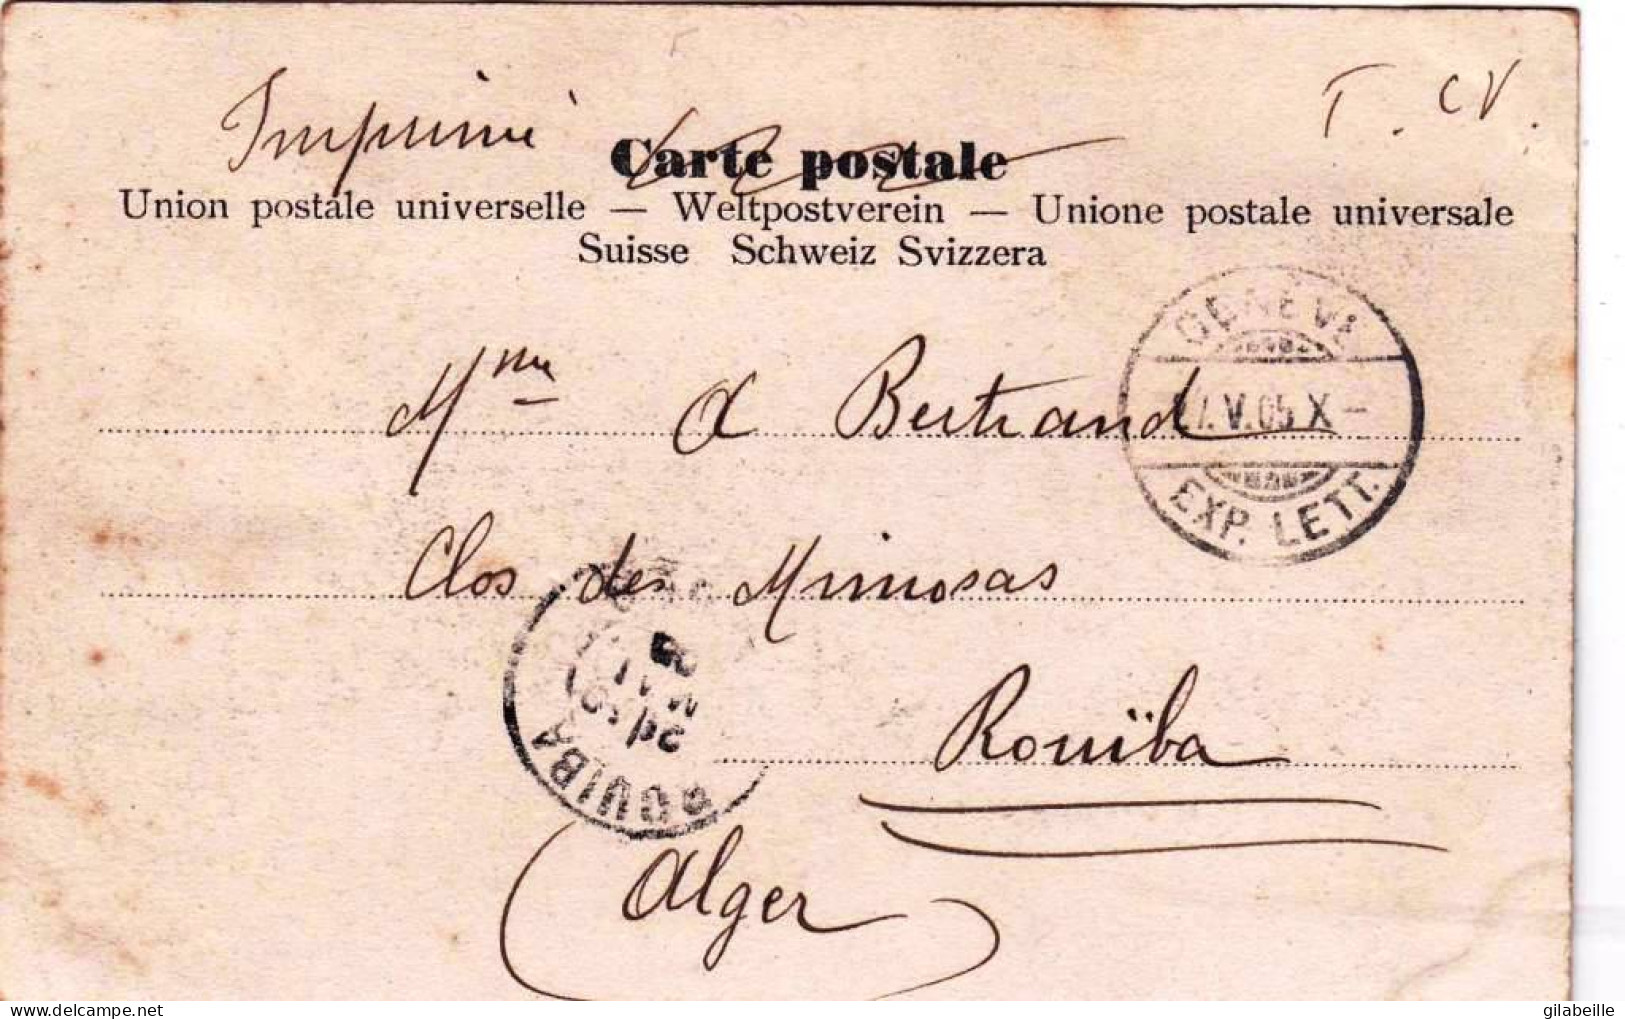 Imprimé
T. CV.
Carte postale
Union postale universelle — Weltpostverein — Unione postale universale
Suisse Schweiz Svizzera
GENÈVE
7. V. 05 X –
EXP. LETT.
Mme A Bertrand
Clos des Mimosas
Rouïba
(Alger)
ROUIBA
MAI
05
gilabeille